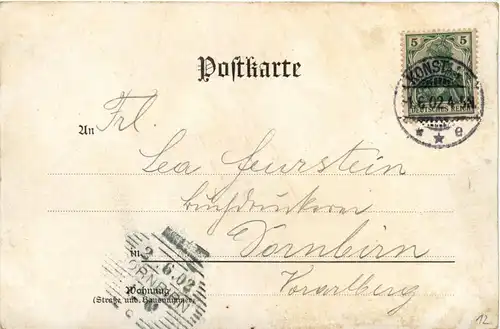 5 5
DEUTSCHES REICH
KONSTANZ
1.6.02.4-5N
* * e
Postkarte
An Frl
Lea Feurstein
Buchdruckerei
in Dornbirn
Wohnung
(Straße und Hausnummer)
Vorarlberg
2.6.02
DORNBIRN
12